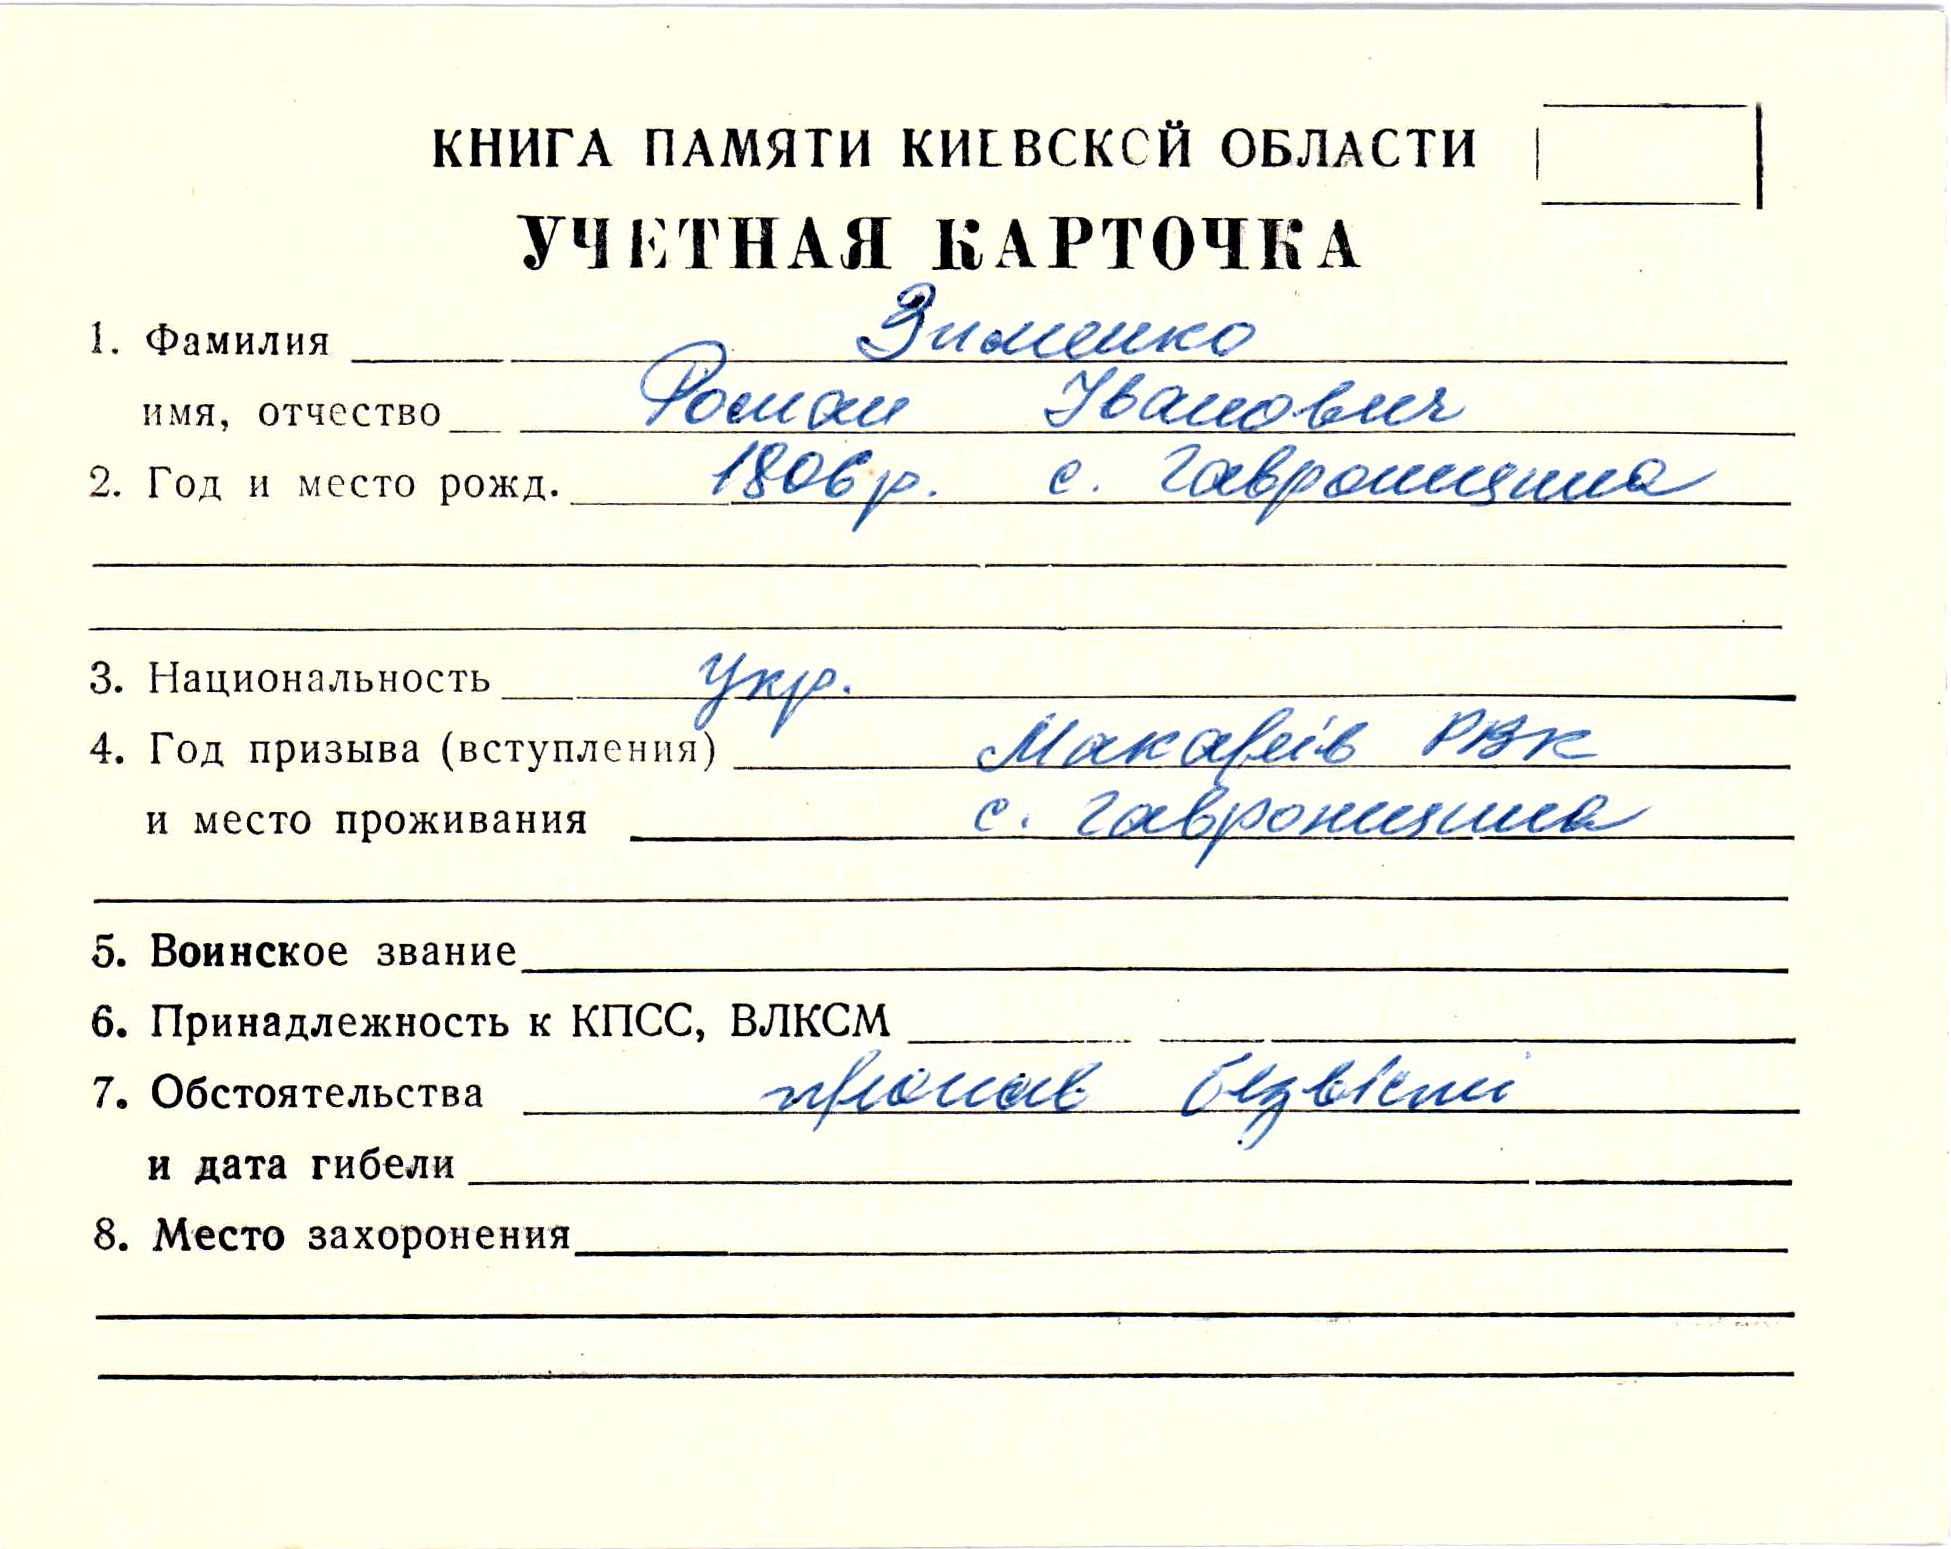 КНИГА ПАМЯТИ КИЕВСКОЙ ОБЛАСТИ
УЧЕТНАЯ КАРТОЧКА
1. Фамилия Зименко
имя, отчество Роман Іванович
2. Год и место рожд. 1806 р. с. Гавронщина
3. Национальность Укр.
4. Год призыва (вступления) Макарів РВК
и место проживания с. Гавронщина
5. Воинское звание
6. Принадлежность к КПСС, ВЛКСМ
7. Обстоятельства пропав безвісти
и дата гибели
8. Место захоронения